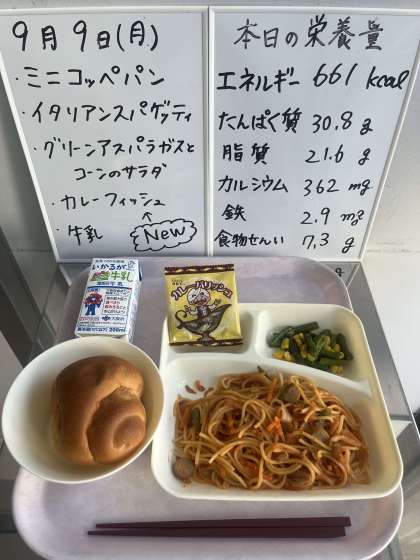 9月9日(月)
・ミニコッペパン
・イタリアンスパゲッティ
・グリーンアスパラガスと
コーンのサラダ
・カレーフィッシュ
・牛乳
New
本日の栄養量
エネルギー 661 kcal
たんぱく質 30.8 g
脂質 21.6 g
カルシウム 362 mg
鉄 2.9 mg
食物せんい 7.3 g
g
いかるが
牛乳
200ml